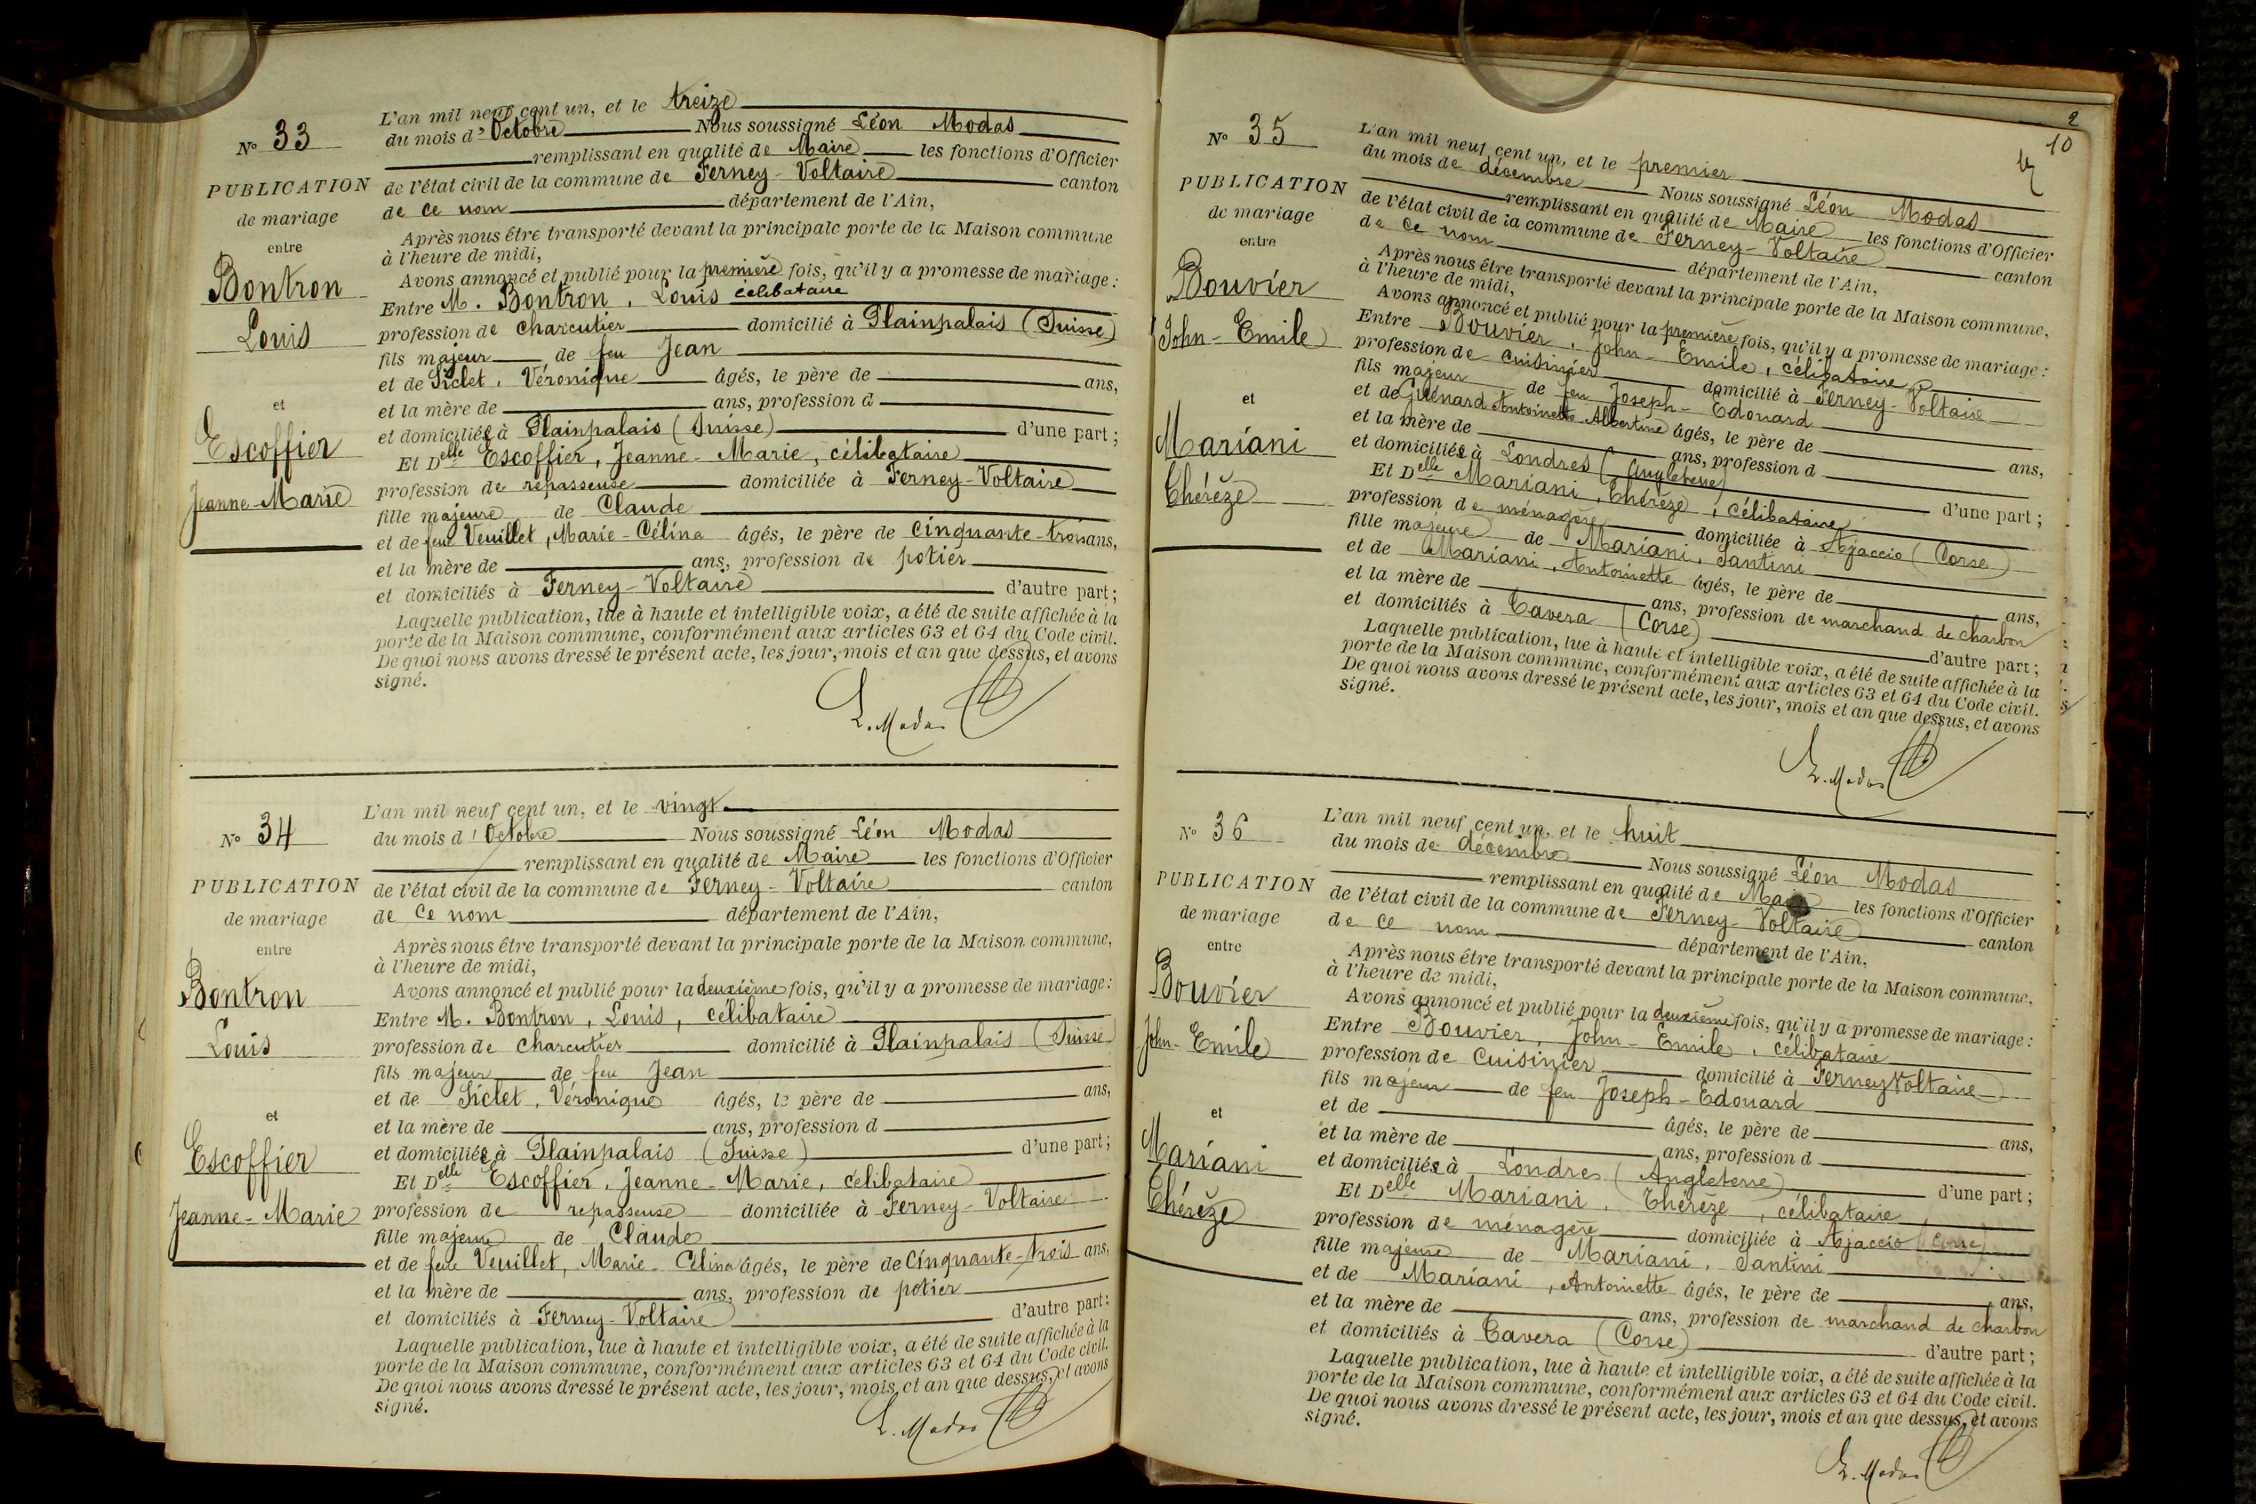 N° 33
PUBLICATION
de mariage
entre
Bontron
Louis
et
Escoffier
Jeanne-Marie
L'an mil neuf cent un, et le treize
du mois d'Octobre Nous soussigné Léon Modas
remplissant en qualité de Maire les fonctions d'Officier
de l'état civil de la commune de Ferney-Voltaire canton
de ce nom département de l'Ain,
Après nous être transporté devant la principale porte de la Maison commune
à l'heure de midi,
Avons annoncé et publié pour la première fois, qu'il y a promesse de mariage :
Entre M. Bontron, Louis célibataire
profession de charcutier domicilié à Plainpalais (Suisse)
fils majeur de feu Jean
et de Siclet, Véronique âgés, le père de ans,
et la mère de ans, profession d
et domiciliée à Plainpalais (Suisse) d'une part ;
Et Delle Escoffier, Jeanne-Marie, célibataire
profession de repasseuse domiciliée à Ferney-Voltaire
fille majeure de Claude
et de feue Veuillet, Marie-Célina âgés, le père de cinquante-trois ans,
et la mère de ans, profession de potier
et domiciliés à Ferney-Voltaire d'autre part ;
Laquelle publication, lue à haute et intelligible voix, a été de suite affichée à la
porte de la Maison commune, conformément aux articles 63 et 64 du Code civil.
De quoi nous avons dressé le présent acte, les jour, mois et an que dessus, et avons
signé.
L. Modas
N° 34
PUBLICATION
de mariage
entre
Bontron
Louis
et
Escoffier
Jeanne-Marie
L'an mil neuf cent un, et le vingt
du mois d'Octobre Nous soussigné Léon Modas
remplissant en qualité de Maire les fonctions d'Officier
de l'état civil de la commune de Ferney-Voltaire canton
de ce nom département de l'Ain,
Après nous être transporté devant la principale porte de la Maison commune,
à l'heure de midi,
Avons annoncé et publié pour la deuxième fois, qu'il y a promesse de mariage :
Entre M. Bontron, Louis, célibataire
profession de charcutier domicilié à Plainpalais (Suisse
fils majeur de feu Jean
et de Siclet, Véronique âgés, le père de ans,
et la mère de ans, profession d
et domiciliée à Plainpalais (Suisse) d'une part ;
Et Delle Escoffier, Jeanne-Marie, célibataire
profession de repasseuse domiciliée à Ferney-Voltaire
fille majeure de Claude
et de feue Veuillet, Marie-Célina âgés, le père de Cinquante-trois ans,
et la mère de ans, profession de potier
et domiciliés à Ferney-Voltaire d'autre part ;
Laquelle publication, lue à haute et intelligible voix, a été de suite affichée à la
porte de la Maison commune, conformément aux articles 63 et 64 du Code civil.
De quoi nous avons dressé le présent acte, les jour, mois et an que dessus, et avons
signé.
L. Modas
2
10
N° 35
PUBLICATION
de mariage
entre
Bouvier
John-Emile
et
Mariani
Thérèze
L'an mil neuf cent un, et le premier
du mois de décembre Nous soussigné Léon Modas
remplissant en qualité de Maire les fonctions d'Officier
de l'état civil de la commune de Ferney-Voltaire canton
de ce nom département de l'Ain,
Après nous être transporté devant la principale porte de la Maison commune,
à l'heure de midi,
Avons annoncé et publié pour la première fois, qu'il y a promesse de mariage :
Entre Bouvier, John-Emile, célibataire
profession de cuisinier domicilié à Ferney-Voltaire
fils majeur de feu Joseph-Edouard
et de Guénard Antoinette Albertine âgés, le père de ans,
et la mère de ans, profession d
et domiciliée à Londres (Angleterre) d'une part ;
Et Delle Mariani, Thérèze, célibataire
profession de ménagère domiciliée à Ajaccio (Corse)
fille majeure de Mariani, Santini
et de Mariani, Antoinette âgés, le père de ans,
et la mère de ans, profession de marchand de charbon
et domiciliés à Tavera (Corse) d'autre part ;
Laquelle publication, lue à haute et intelligible voix, a été de suite affichée à la
porte de la Maison commune, conformément aux articles 63 et 64 du Code civil.
De quoi nous avons dressé le présent acte, les jour, mois et an que dessus, et avons
signé.
L. Modas
N° 36
PUBLICATION
de mariage
entre
Bouvier
John-Emile
et
Mariani
Thérèze
L'an mil neuf cent un, et le huit
du mois de décembre Nous soussigné Léon Modas
remplissant en qualité de Maire les fonctions d'Officier
de l'état civil de la commune de Ferney-Voltaire canton
de ce nom département de l'Ain,
Après nous être transporté devant la principale porte de la Maison commune,
à l'heure de midi,
Avons annoncé et publié pour la deuxième fois, qu'il y a promesse de mariage :
Entre Bouvier, John-Emile, célibataire
profession de Cuisinier domicilié à Ferney Voltaire
fils majeur de feu Joseph-Edouard
et de âgés, le père de ans,
et la mère de ans, profession d
et domiciliée à Londres (Angleterre) d'une part ;
Et Delle Mariani, Thérèze, célibataire
profession de ménagère domiciliée à Ajaccio (Corse)
fille majeure de Mariani, Santini
et de Mariani, Antoinette âgés, le père de ans,
et la mère de ans, profession de marchand de charbon
et domiciliés à Tavera (Corse) d'autre part ;
Laquelle publication, lue à haute et intelligible voix, a été de suite affichée à la
porte de la Maison commune, conformément aux articles 63 et 64 du Code civil.
De quoi nous avons dressé le présent acte, les jour, mois et an que dessus, et avons
signé.
L. Modas